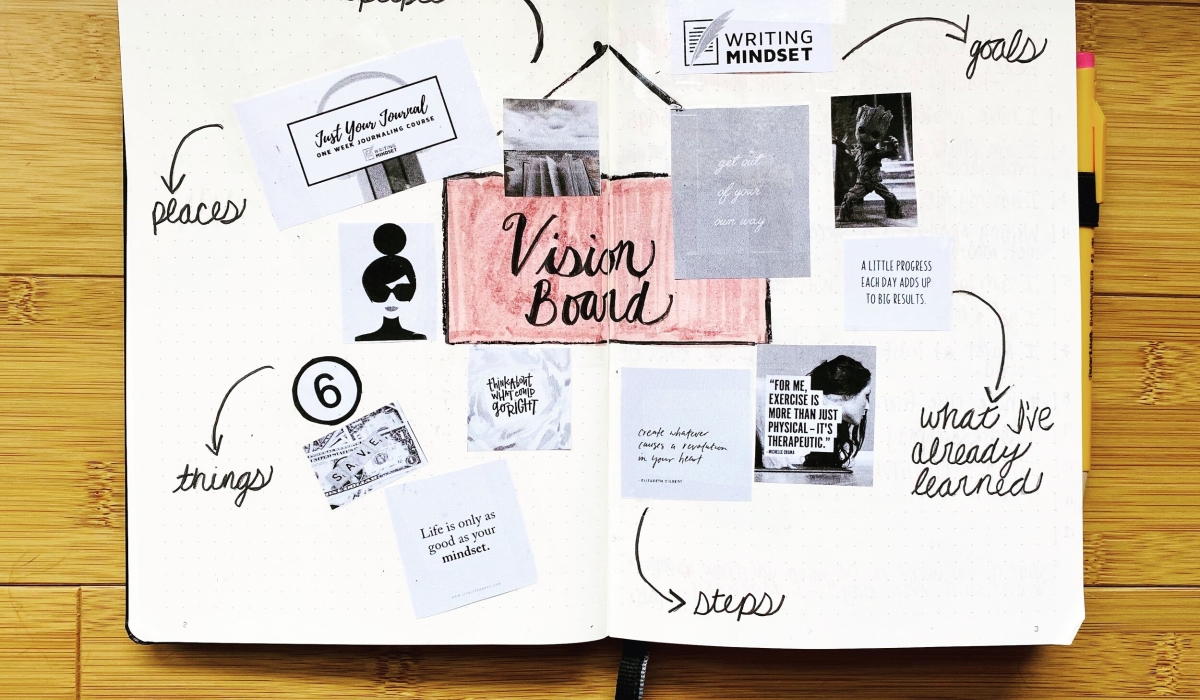 people
WRITING
MINDSET
goals
Just Your Journal
ONE WEEK JOURNALING COURSE
WRITING
MINDSET
places
get out
of your
own way
Vision
Board
A LITTLE PROGRESS
EACH DAY ADDS UP
TO BIG RESULTS.
6
things
SAVE
THINK ABOUT
WHAT COULD
GO RIGHT
create whatever
causes a revolution
in your heart
- ELIZABETH GILBERT
"FOR ME,
EXERCISE IS
MORE THAN JUST
PHYSICAL – IT'S
THERAPEUTIC."
-MICHELLE OBAMA
what I've
already
learned
Life is only as
good as your
mindset.
steps
2
3